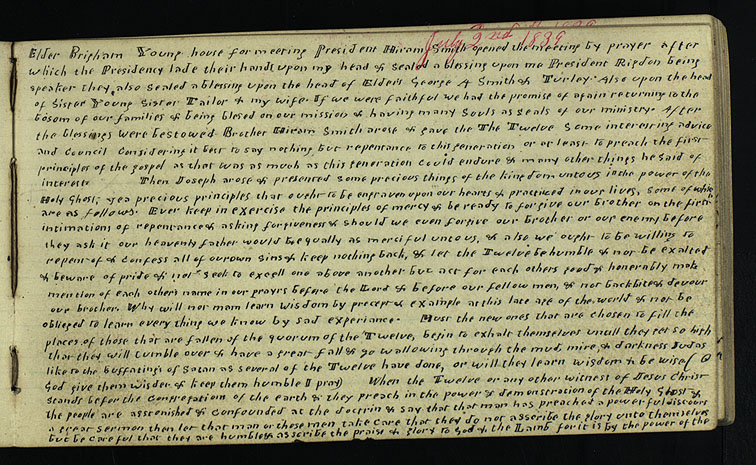 July 2nd 1839
Elder Brigham Young house for meeting President Hiram Smith opened the meeting by prayer after
which the Presidency lade their hands upon my head & sealed a blessing upon me President Rigdon being
speaker they also sealed a blessing upon the head of Elders George A Smith & Turley. Also upon the head
of Sister Young Sister Tailor & my wife. If we were faithful we had the promise of again returning to the
bosom of our families & being blessed on our mission & having many souls as seals of our ministry. After
the blessings were bestowed Brother Hiram Smith arose & gave the The Twelve some interesting advice
and council considering it best to say nothing but repentance to this generation or at least to preach the first
principles of the gospel as that was as much as this generation could endure & many other things he said of
interest Then Joseph arose & presented some precious things of the kingdom unto us in the power of the
Holy Ghost, yea precious principles that ought to be engraven upon our hearts & practiced in our lives, some of which
are as follows. Ever keep in exercise the principles of mercy & be ready to forgive our brother on the first
intimations of repentance & asking forgiveness & should we even forgive our brother or our enemy before
they ask it our heavenly father would be equally as merciful unto us, & also we ought to be willing to
repent of & confess all of our own sins & keep nothing back, & let the Twelve be humble & not be exalted
& beware of pride & not seek to excell one above another but act for each others good & honerably make
mention of each others name in our prayrs before the Lord & before our fellow men, & not backbite & devour
our brother. Why will not man learn wisdom by precept & example at this late age of the world & not be
obliged to learn every thing we know by sad experiance. Must the new ones that are chosen to fill the
places of those that are fallen of the quorum of the Twelve, begin to exhalt themselves untill they get so high
that they will tumble over & have a great fall & go wallowing through the mud, mire, & darkness Judas
like to the buffatings of Satan as several of the Twelve have done, or will they learn wisdom & be wise (O
God give them wisdom & keep them humble I pray) When the Twelve or any other witness of Jesus Christ
stands before the congregations of the earth & they preach in the power & demonstration of the Holy Ghost &
the people are asstonished & confounded at the doctrin & say that that man has preached a powerful discours
a great sermon then let that man or those men take care that they do not asscribe the glory unto themselves
but be careful that they are humble & asscribe the praise & glory to God & the Lamb for it is by the power of the